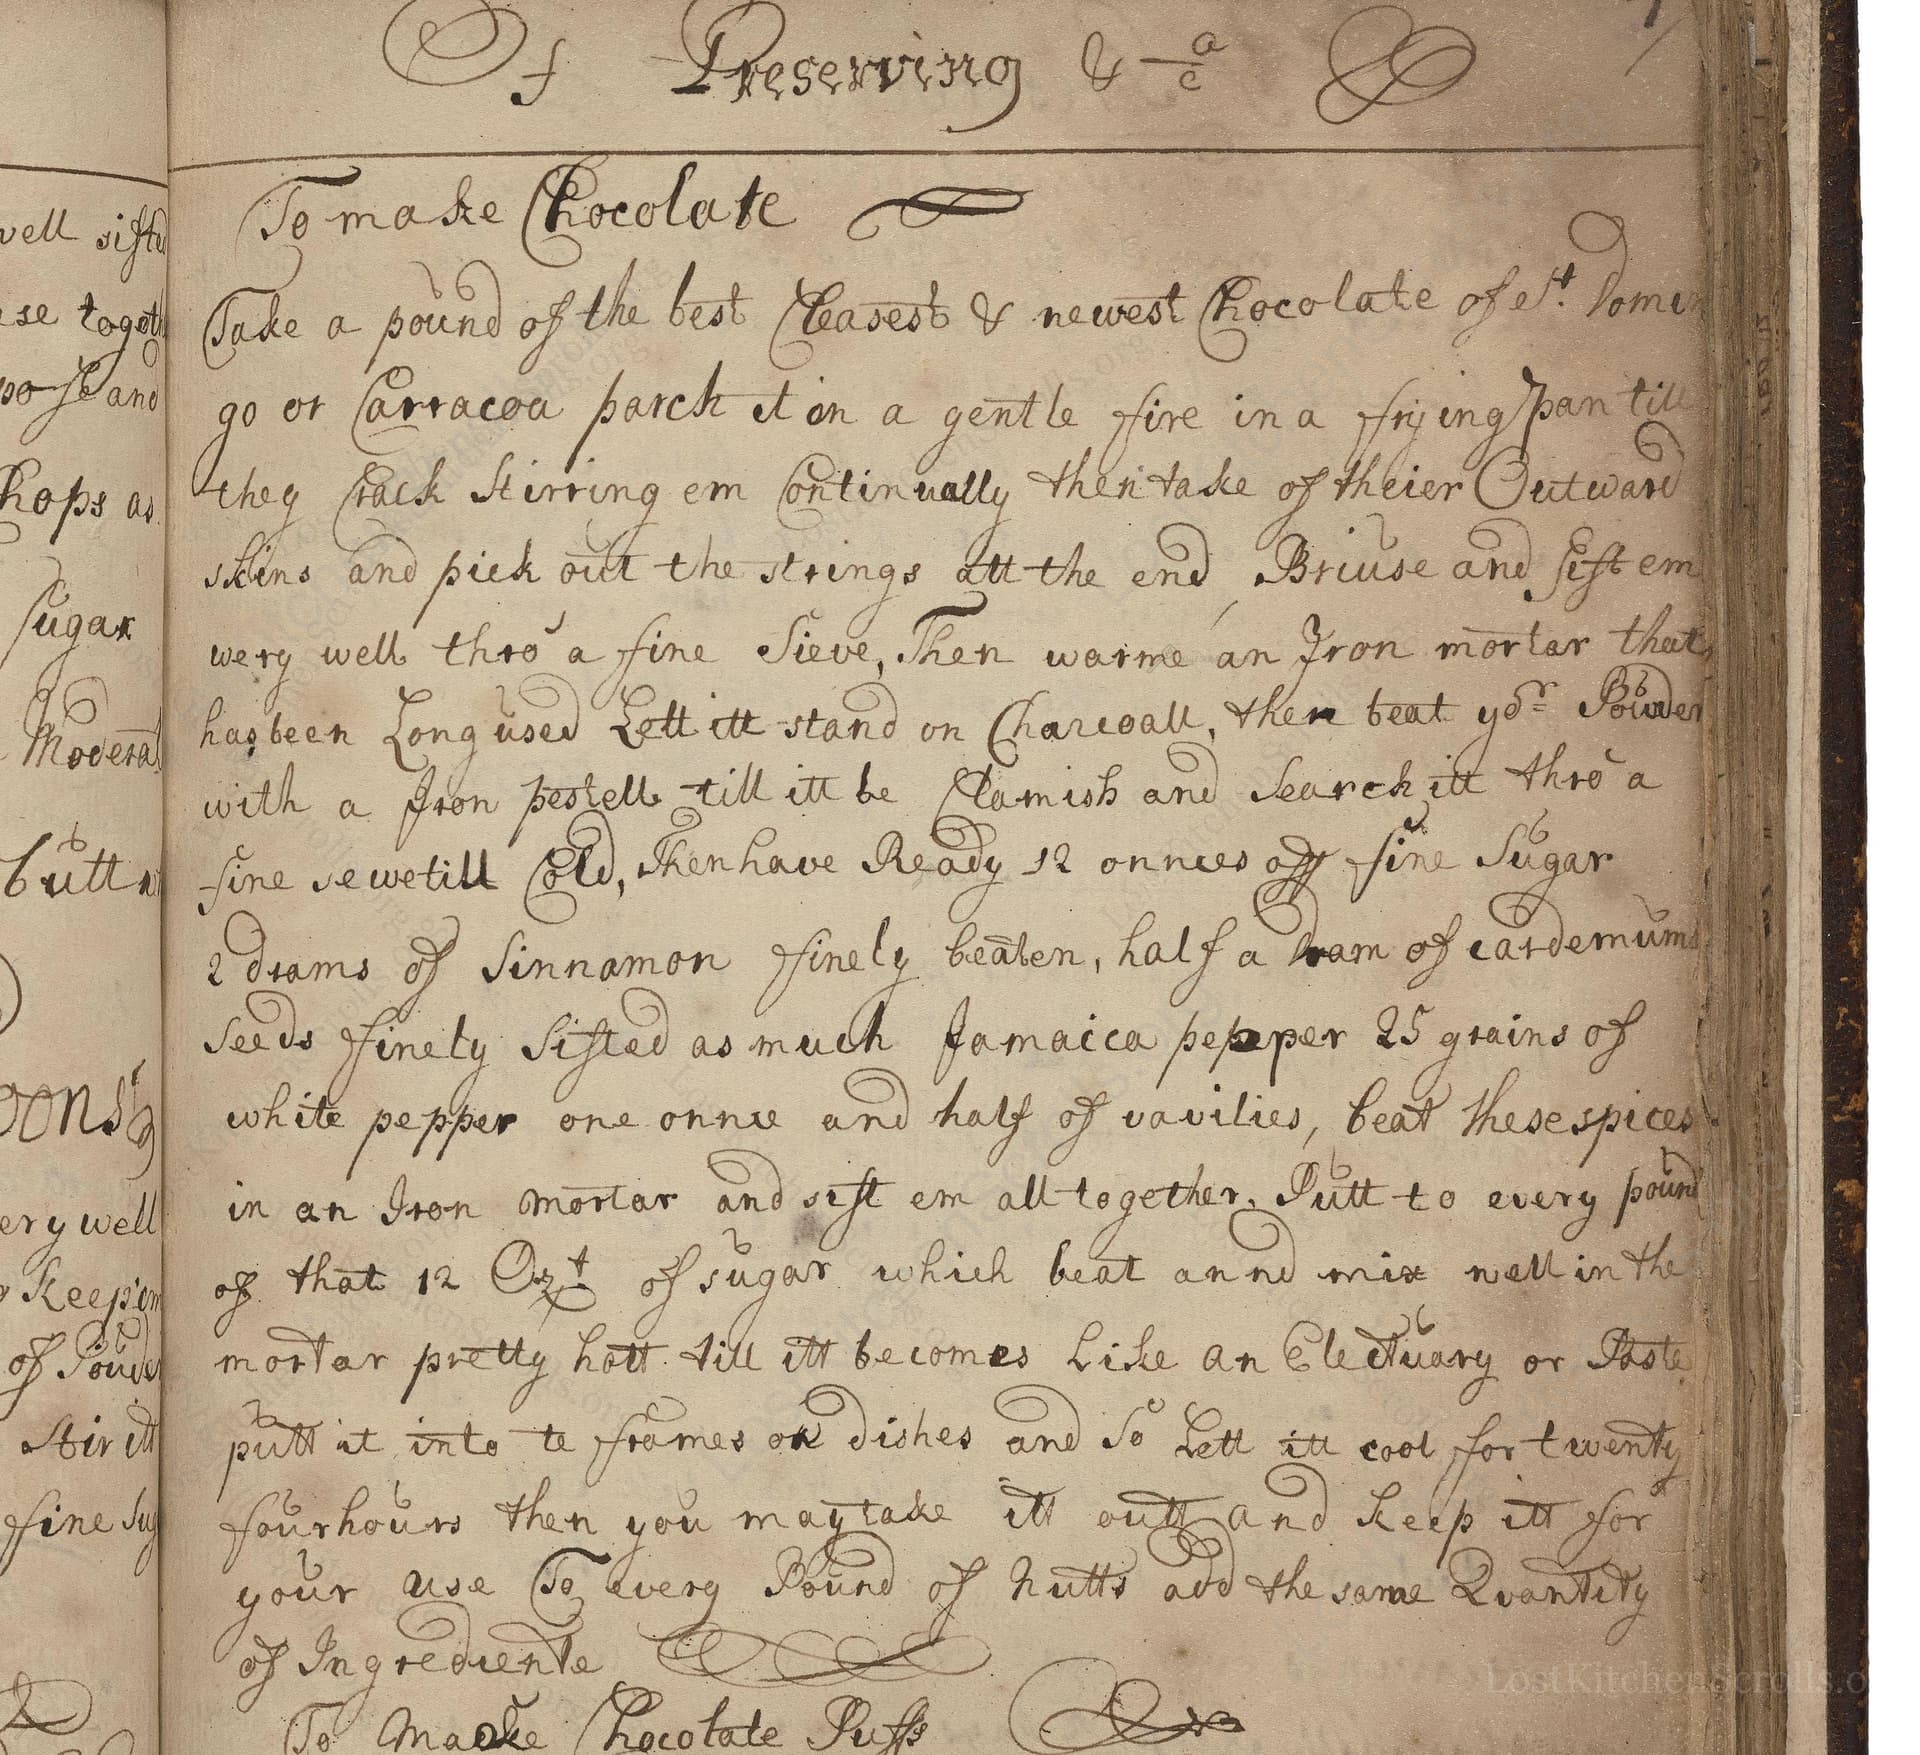 Of Preserving & a/c
To make Chocolate
Take a pound of the best Clearest & newest Chocolate of St. Domin
go or Carracoa parch it on a gentle fire in a frying pan till
they Crack Stirring em Continually then take of theier Outward
skins and pick out the strings att the end, Briuse and sift em
wery well thro a fine Sieve, Then warme an Iron mortar that
has been Long used Lett itt stand on Charcoall, then beat yor Powder
with a Iron pestell till itt be Clamish and Searck itt thro a
fine sewe till Cold, Then have Ready 12 onnces off fine Sugar
2 drams of Sinnamon finely beaten, half a Dram of cardemums
Seeds finely Sifted as much Jamaica pepper 25 grains of
white pepper one onnce and half of vavilies, beat these spices
in an Iron mortar and sift em all together. Putt to every pound
of that 12 Ozt of sugar which beat annd mix well in the
mortar pretty hott till itt becomes Like an Electuary or Paste
putt it into te frames or dishes and So Lett itt cool for twenty
four hours then you may take itt outt and keep itt for
your use To every Pound of Nutts add the same Quantity
of Ingrediente
To Macke Chocolate Puffs
well sifted
ese togeth
and
hops as
sugar
Moderat
butt
oons
ery well
keep em
of Pouder
Stir itt
fine Sug
LostKitchenScrolls.o